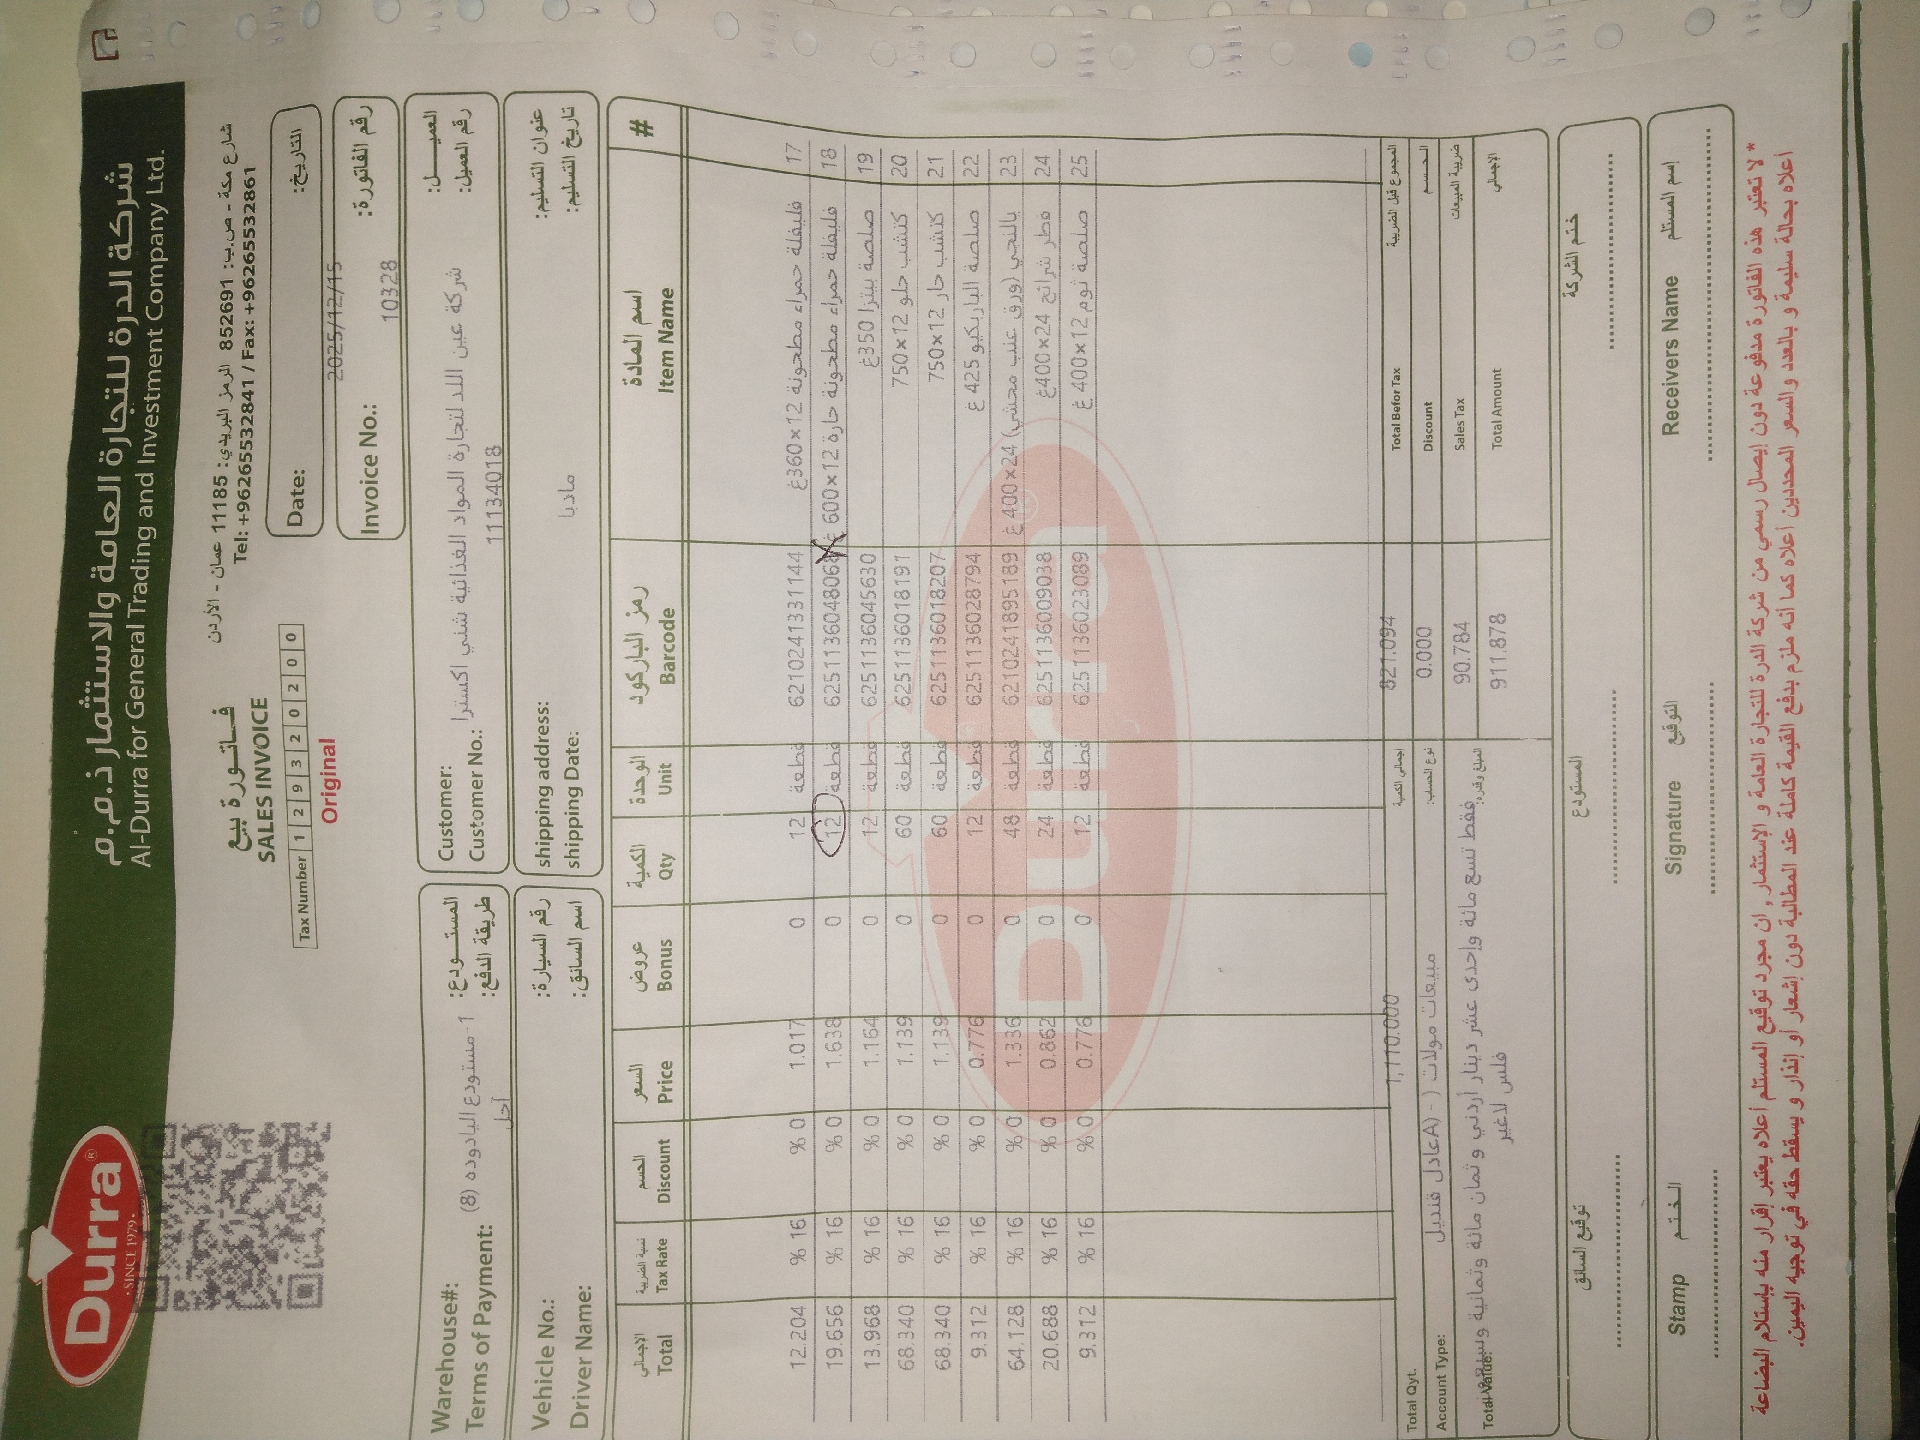 Durra®
· SINCE 1979 ·
شركة الدرة للتجارة العامة والاستثمار ذ.م.م
Al-Durra for General Trading and Investment Company Ltd.
شارع مكة - ص.ب: 852691 الرمز البريدي: 11185 عمان - الأردن
Tel: +96265532841 / Fax: +96265532861
فـاتـورة بيع
SALES INVOICE
Tax Number 1 2 9 3 2 0 2 0 0
Original
Date: 2025/12/15 التاريخ:
Invoice No.: 10328 رقم الفاتورة:
Warehouse#: 1-مستودع اليادوده (8) المستــودع:
Terms of Payment: آجل طريقة الدفع:
Customer: شركة عين اللد لتجارة المواد الغذائية شني اكسترا العميــل:
Customer No.: 11134018 رقم العميل:
Vehicle No.: رقم السيارة:
Driver Name: اسم السائق:
shipping address: مادبا عنوان التسليم:
shipping Date: تاريخ التسليم:
الإجمالي نسبة الضريبة الحسم السعر عروض الكمية الوحدة رمز الباركود اسم المادة #
Total Tax Rate Discount Price Bonus Qty Unit Barcode Item Name
12.204 % 16 % 0 1.017 0 12 قطعة 6210241331144 فليفلة حمراء مطحونة 12×360غ 17
19.656 % 16 % 0 1.638 0 12 قطعة 625113604806 فليفلة حمراء مطحونة حارة 12×600 غ 18
13.968 % 16 % 0 1.164 0 12 قطعة 6251136045630 صلصة بيتزا 350غ 19
68.340 % 16 % 0 1.139 0 60 قطعة 6251136018191 كتشب حلو 12×750 20
68.340 % 16 % 0 1.139 0 60 قطعة 6251136018207 كتشب حار 12×750 21
9.312 % 16 % 0 0.776 0 12 قطعة 6251136028794 صلصة الباربكيو 425 غ 22
64.128 % 16 % 0 1.336 0 48 قطعة 6210241895189 يالنجي (ورق عنب محشي) 24×400 غ 23
20.688 % 16 % 0 0.862 0 24 قطعة 6251136009038 فطر شرائح 24×400غ 24
9.312 % 16 % 0 0.776 0 12 قطعة 6251136023089 صلصة ثوم 12×400 غ 25
Durra®
Total Qyt. 1,110.000 اجمالي الكمية 821.094 Total Befor Tax المجموع قبل الضريبة
Account Type: مبيعات مولات ) - (Aعادل قنديل نوع الحساب: 0.000 Discount الحـسـم
90.784 Sales Tax ضريبة المبيعات
Total Value: فقط تسع مائة وإحدى عشر دينار أردني و ثمان مائة وثمانية وسبعون المبلغ وقدره: 911.878 Total Amount الإجمالي
فلس لاغير
توقيع السائق المستودع ختم الشركة
Stamp الـخـتـم Signature التوقيع Receivers Name إسم المستلم
* لا تعتبر هذه الفاتورة مدفوعة دون إيصال رسمي من شركة الدرة للتجارة العامة و الإستثمار , ان مجرد توقيع المستلم أعلاه يعتبر إقرار منه بإستلام البضاعة
اعلاه بحالة سليمة و بالعدد والسعر المحددين أعلاه كما أنه ملزم بدفع القيمة كاملة عند المطالبة دون إشعار أو إنذار و يسقط حقه في توجيه اليمين.